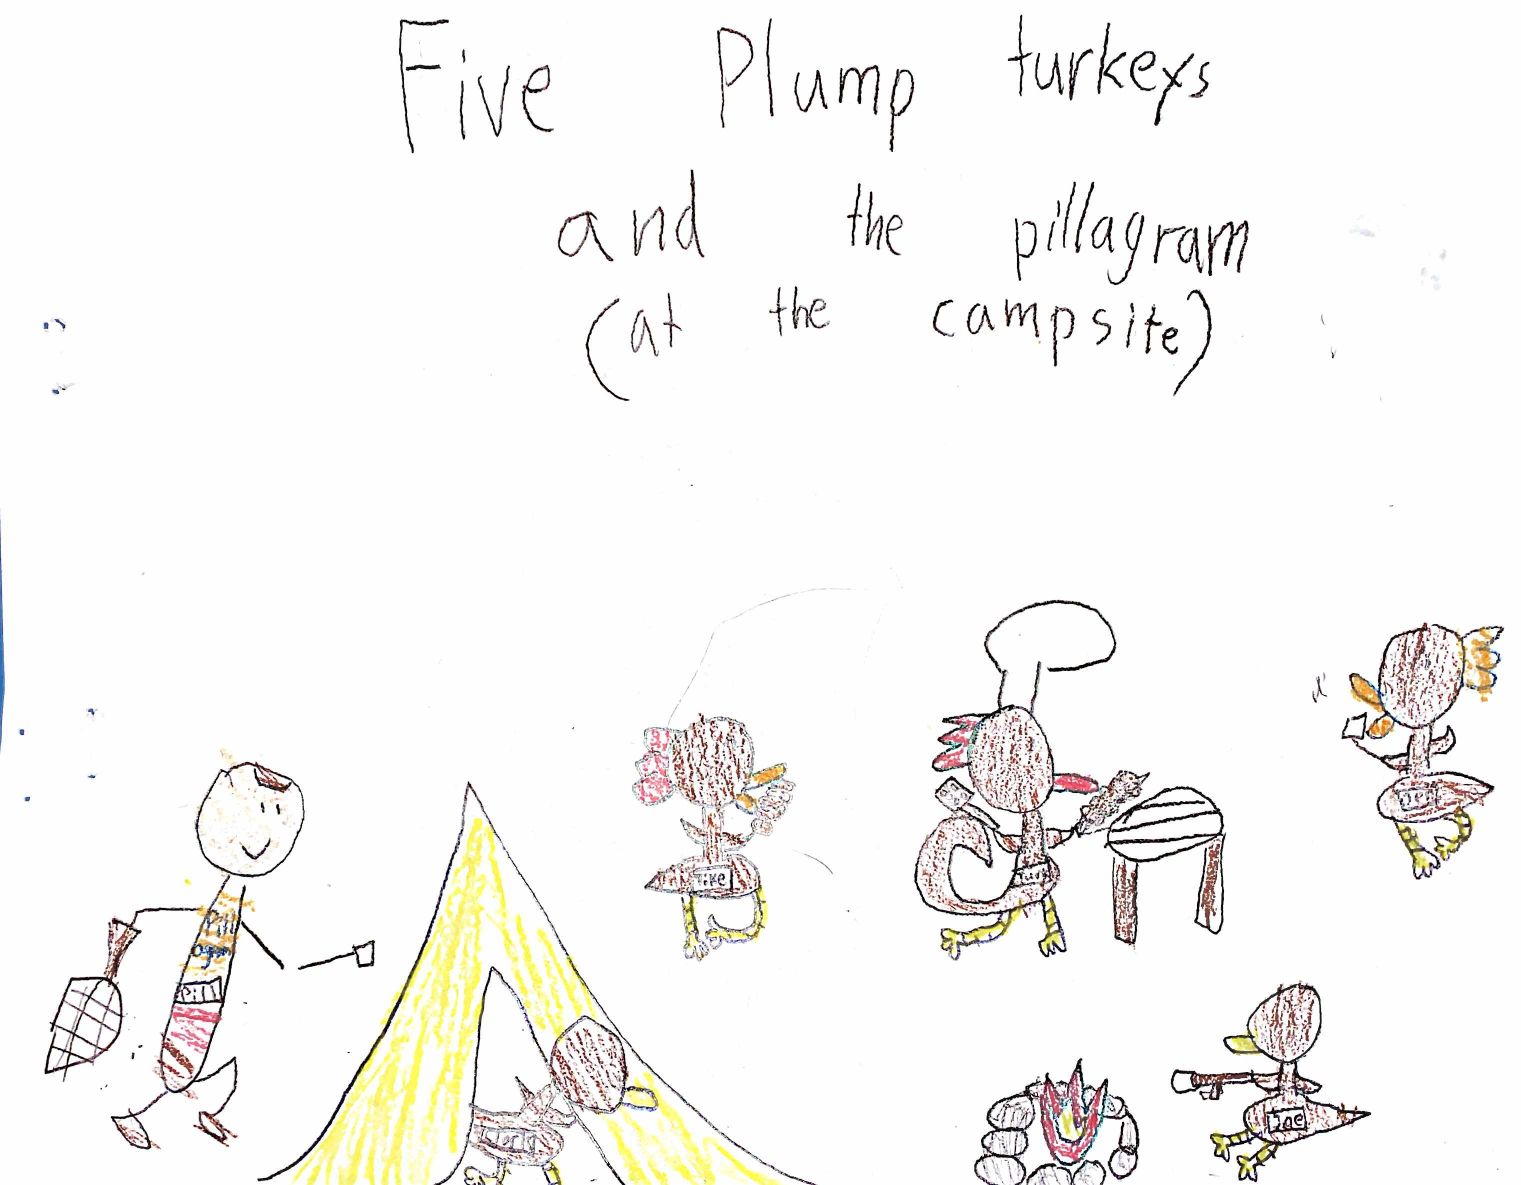 Five Plump turkeys
and the pillagram
(at the campsite)
Pill
Joe